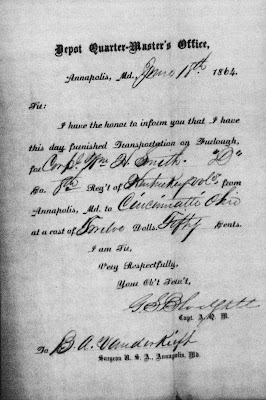 Depot Quarter-Master's Office,
Annapolis, Md. June 18th 1864.
Sir:
I have the honor to inform you that I have
this day furnished Transportation on Furlough,
for Corpl. Wm H. Smith. "D"
Co. 8th Reg't of Kentucky Vols. from
Annapolis, Md. to Cincinnatti Ohio
at a cost of Twelve Dolls. Fifty Cents.
I am Sir,
Very Respectfully,
Your Ob't Serv't,
Capt. A. Q. M.
To B. A. Vanderkieft
Surgeon U. S. A., Annapolis, Md.